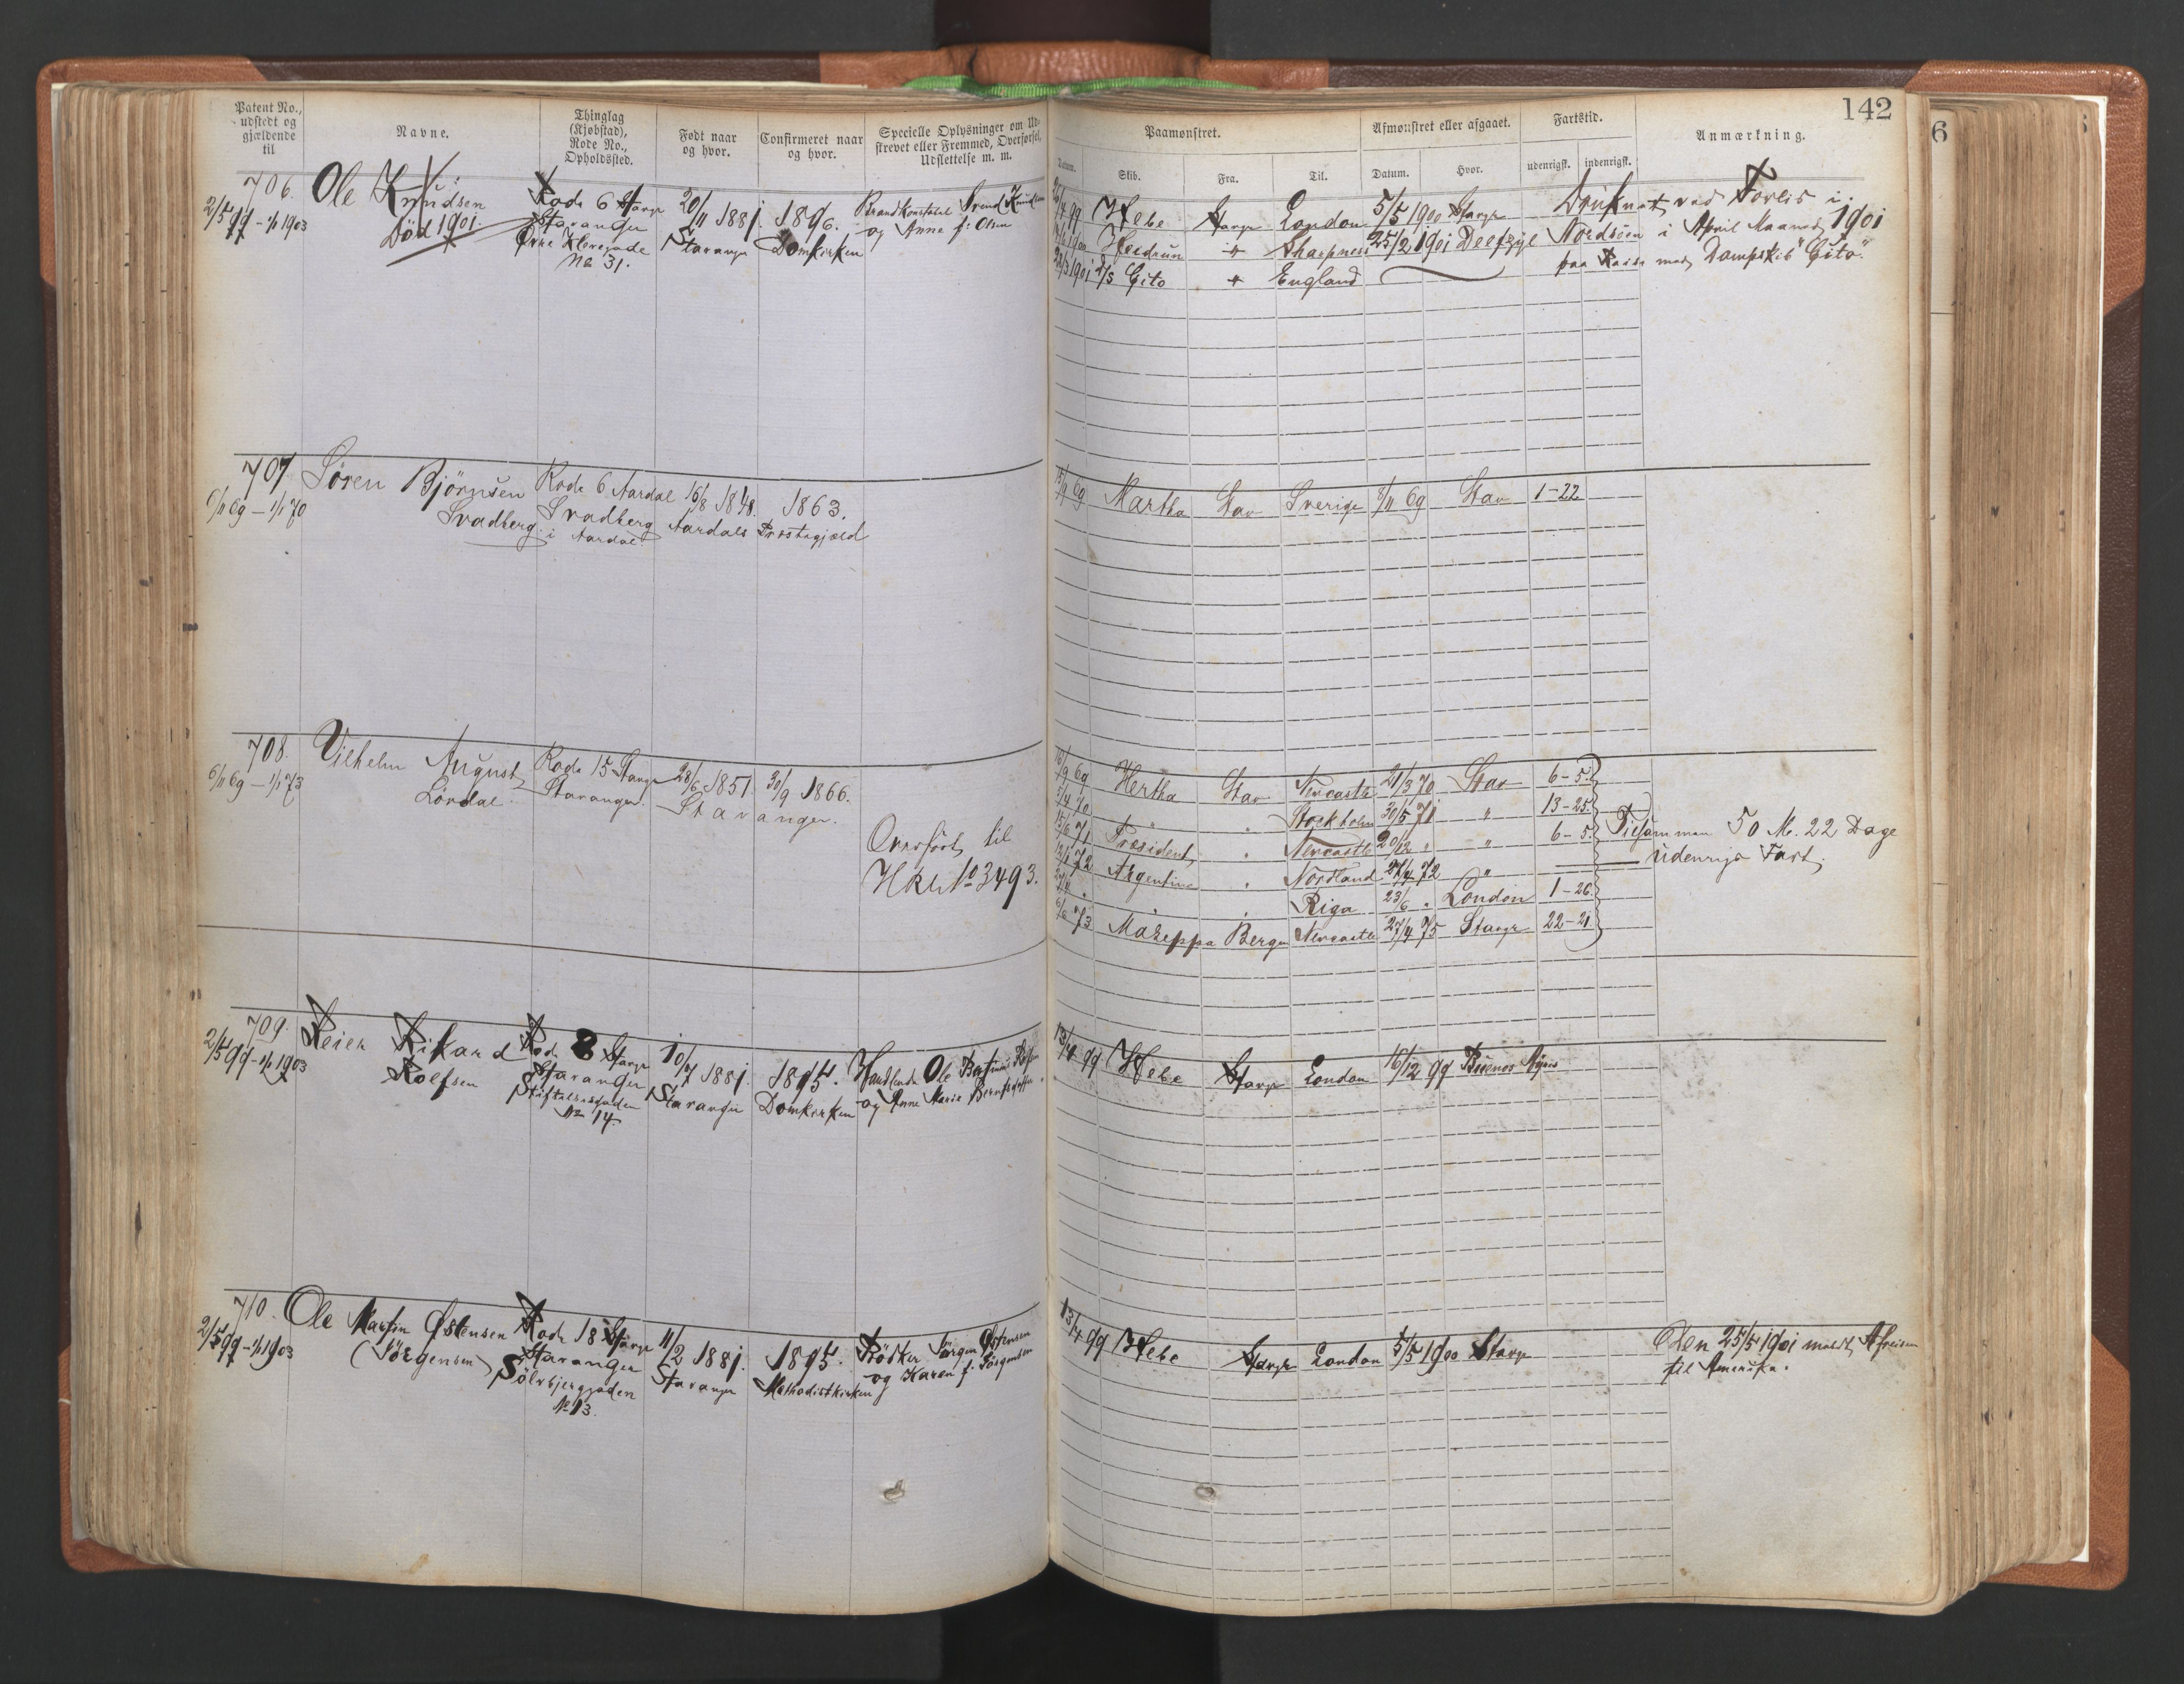 Patent No.,
udstedt og
gjældende
til
Navne.
Thinglag
(Kjøbstad),
Rode No.,
Opholdssted.
Født naar
og hvor.
Confirmeret naar
og hvor.
Specielle Oplysninger om Ud-
skrevet eller Fremmed, Overførsel,
Udslettelse m. m.
706.
2/5 99 - 1/1 1903
Ole Knudsen
Död 1901.
Rode 6 Stavgr
Stavanger
Øvre Klevegade
No 31.
20/11 1881.
Stavanger
1896.
Domkirken
Brandkonstabel Svend Knudsen
og Anne f. Olsen
707.
6/11 69 - 1/1 70
Sören Björnsen
Svadberg
Rode 6 Aardal
Svadberg
i Aardal
16/8 1848.
Aardals
1863.
Præstegjæld
708.
6/11 69 - 1/1 73
Vilhelm August
Lördal
Rode 15 Stavgr
Stavanger.
28/6 1851.
30/9 1866.
Stavanger.
Overfört til
HkL No 3493.
709.
2/5 99 - 1/1 1903
Reier Rikard
Rolfsen
Rode 8 Stavgr
Stavanger
Stiftelsesgaden
No 14.
10/7 1881.
Stavanger
1895.
Domkirken
Handlende Ole
og Anne Marie
710.
2/5 99 - 1/1 1903
Ole Martin Østensen
(Jörgensen)
Rode 18 Stavgr
Stavanger
Sölvbjerggaden
No 13.
11/2 1881.
Stavanger
1895.
Methodistkirken
Bödker Jörgen Østensen
og Karen f. Jörgensen
142
Paamønstret.
Afmønstret eller afgaaet.
Fartstid.
Anmærkning.
Datum.
Skib.
Fra.
Til.
Datum.
Hvor.
udenrigsk.
indenrigsk.
Hebe Stavgr London 5/5 1900 Stavgr
Heidrun " Sharpness 25/2 1901 Delfzyl
D/S Cito " England
Druknet ved Forlis i
Nordsöen i April Maaned 1901
paa Reise med Dampskib "Cito".
15/9 69 Martha Stav Sverige 8/11 69 Stav 1-22
16/9 69 Hertha Stav Newcastle 21/3 70 Stav 6-5
5/4 70 " " Stockholm 30/5 71 " 13-25
15/6 71 Præsident " Newcastle 20/12 " " 6-5
72 Argentina " Nordland 27/4 72 "
" " Riga 23/6 " London 1-26
6/6 73 Mazeppa Bergen Newcastle 27/4 75 Stavgr 22-21
Tilsammen 50 M. 22 Dage
udenrigs Fart.
13/4 99 Hebe Stavgr London 16/12 99 Buenos Ayres
13/4 99 Hebe Stavgr London 5/5 1900 Stavgr
Den 25/5 1901 meldt Afreisen
til Amerika.
6